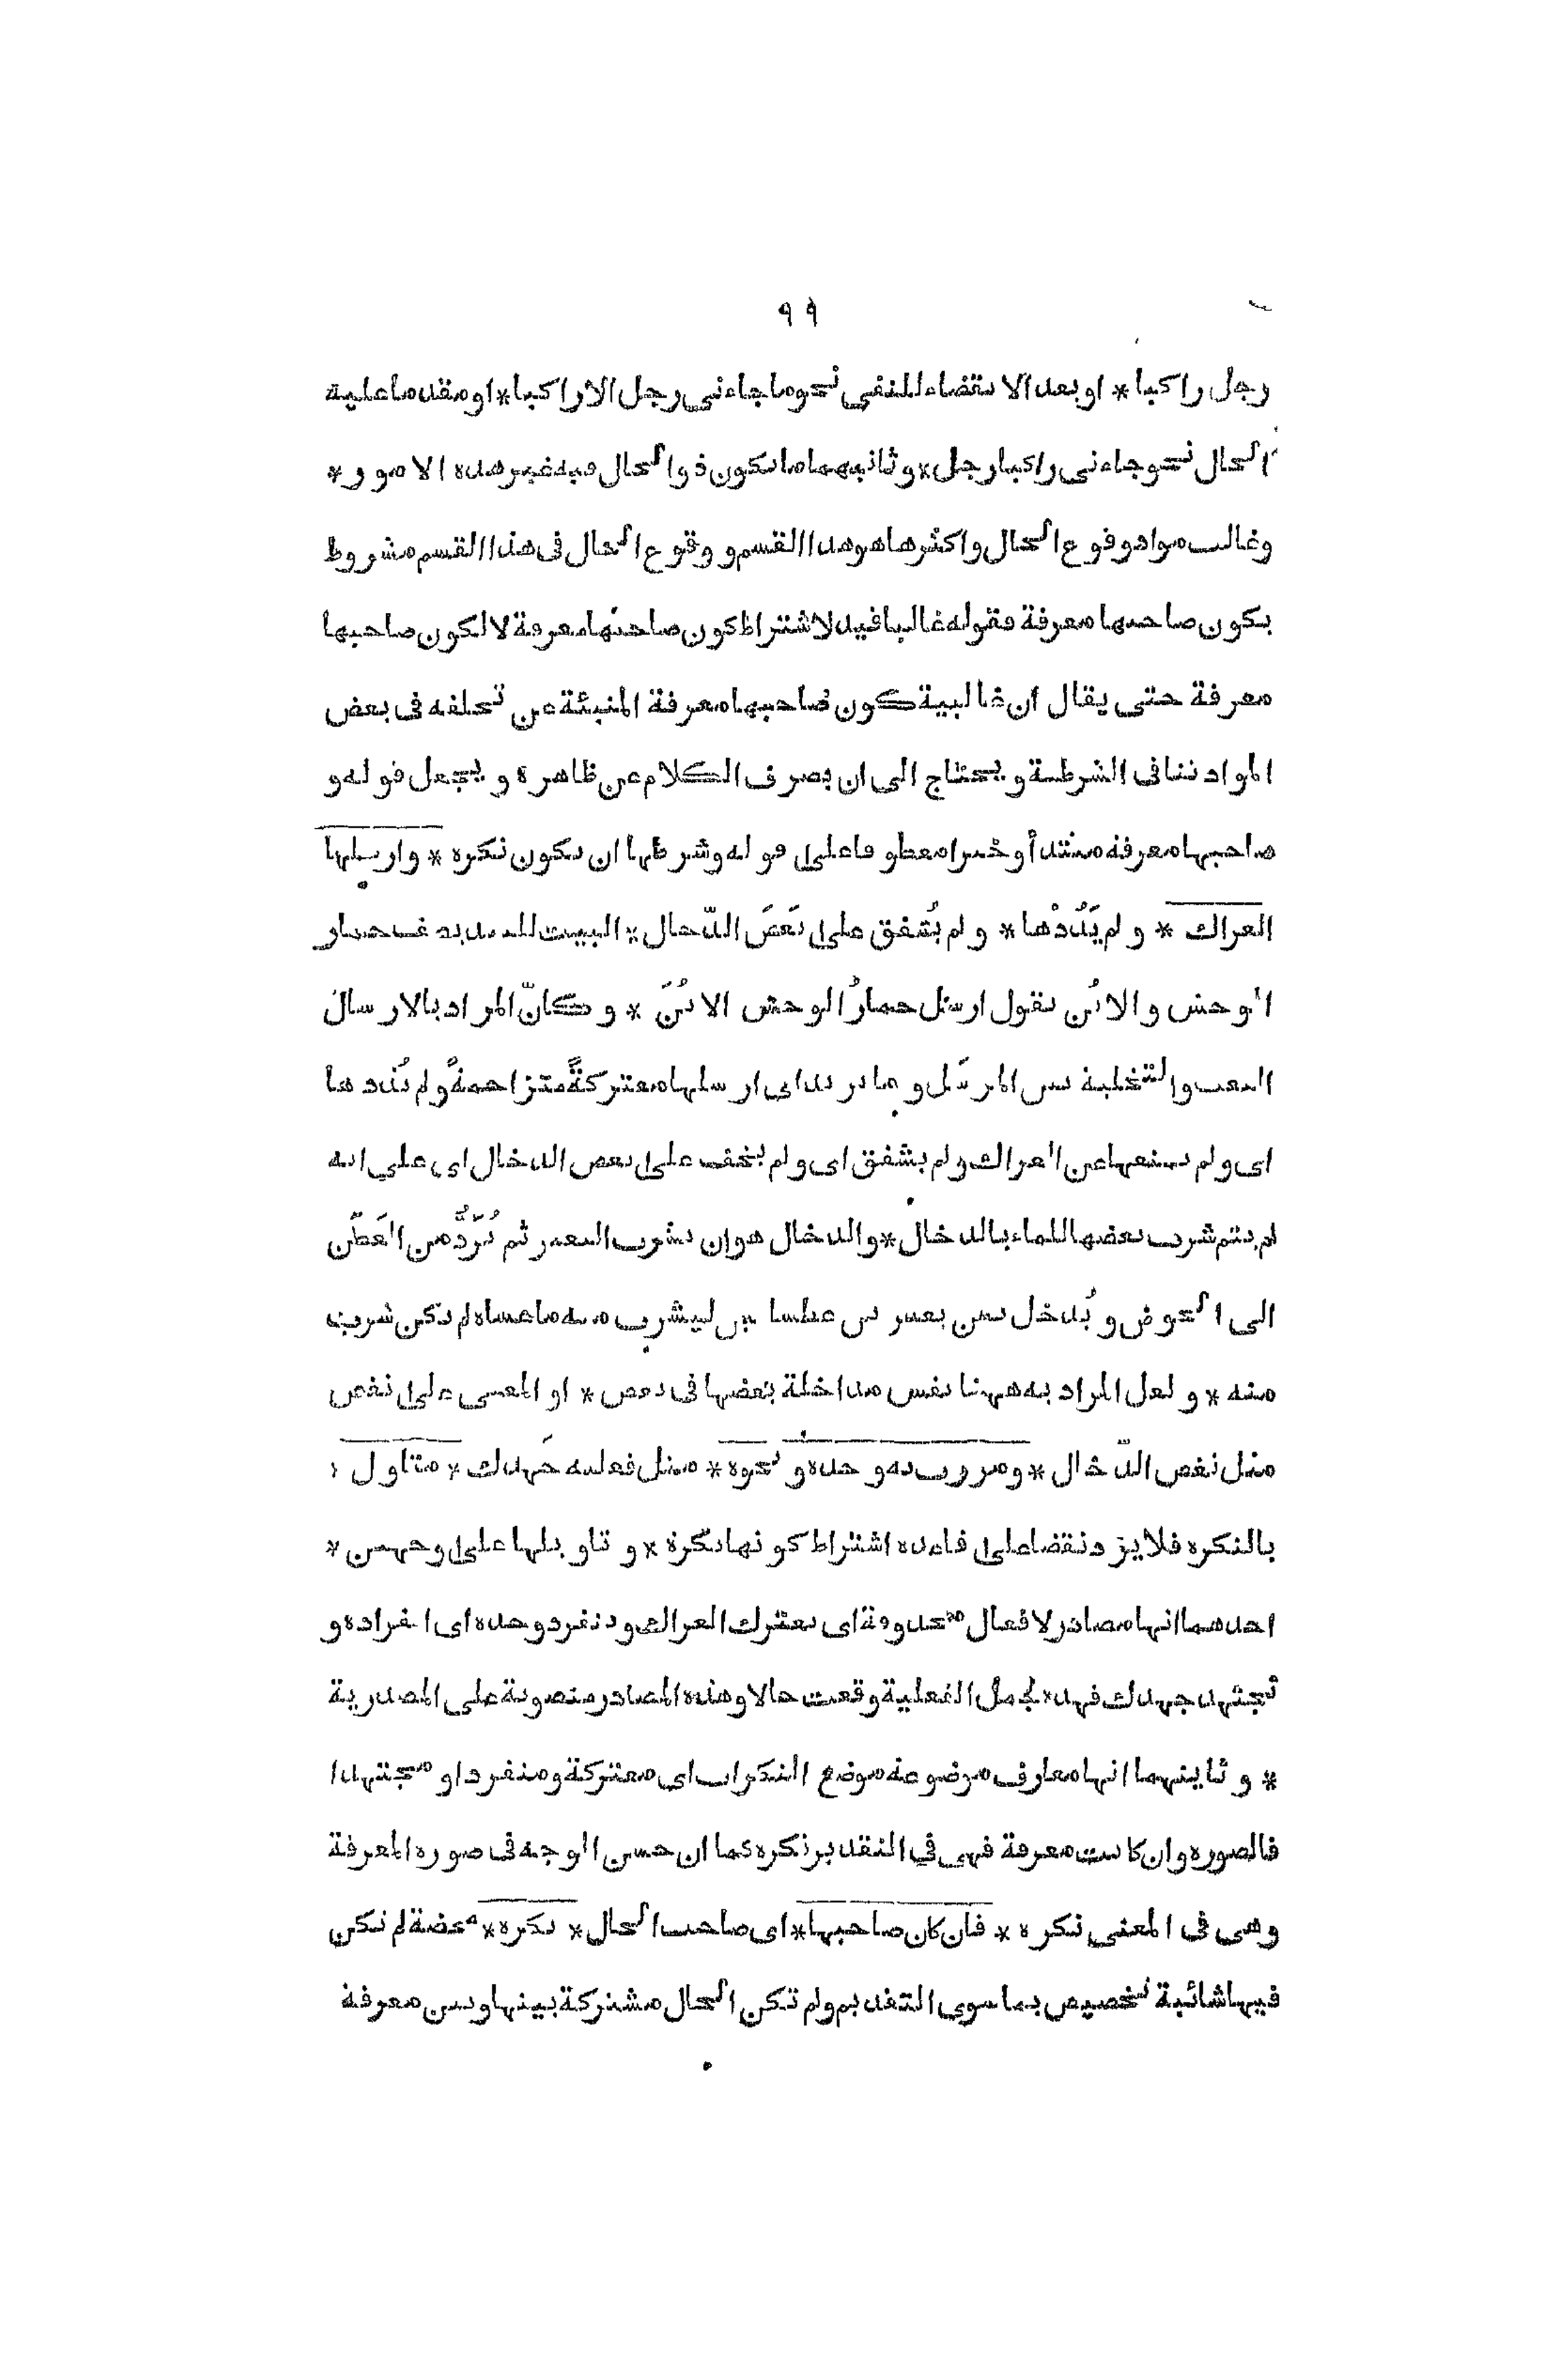 ٩٩
رجل راكبا * او بعد الا نقضاء للنفى نحو ما جاءنى رجل الا راكبا * او مقدما عليه
الحال نحو جاءنى راكبا رجل * وثانيهما ما يكون ذو الحال فيه غير هذه الامور *
وغالب مواد وقوع الحال واكثرها هو هذا القسم و وقوع الحال فى هذا القسم مشروط
بكون صاحبها معرفة فقوله غالبا فيد لاشتراط كون صاحبها معرفة لا لكون صاحبها
معرفة حتى يقال ان غالبية كون صاحبها معرفة المنبئة عن تخلفه فى بعض
المواد تنافى الشرطية و يحتاج الى ان يصرف الكلام عن ظاهره و يجعل قوله و
صاحبها معرفة مبتدأ وخبرا معطوفا على قوله وشرطها ان تكون نكرة * وارسلها
العراك * و لم يَذُدْها * و لم يُشفق على نَغَصَ الدّخال * البيت للبيد يصف حمار
الوحش و الاتُن يقول ارسل حمارُ الوحش الاتُنَ * و كانّ المراد بالارسال
البعث والتخلية بين المرسَل و ما يريد اى ارسلها معتركةً متزاحمةً و لم يذدها
اى و لم يمنعها عن العراك و لم يشفق اى و لم يخف على نغص الدخال اى على انه
لم يتم شرب بعضها للماء بالدخال * والدخال هو ان يشرب البعير ثم يُرَدُّ من العَطَن
الى الحوض و يُدخل بين بعيرين عطشانين ليشرب منه ما عساه لم يكن شرب
منه * و لعل المراد به ههنا نفس مداخلة بعضها فى بعض * او المعنى على نغص
مثل نغص الدّخال * ومررت به وحده و نحوه * مثل فعلته جَهدك * متاول *
بالنكرة فلا يرد نقضا على قاعدة اشتراط كونها نكرة * و تاويلها على وجهين *
احدهما انها مصادر لافعال محذوفة اى تعترك العراك و ينفرد وحده اى انفراده و
تجتهد جهدك فهذه الجمل الفعلية وقعت حالا وهذه المصادر منصوبة على المصدرية
* و ثانيهما انها معارف موضوعة موضع النكرات اى معتركة و منفردا و مجتهدا
فالصورة و ان كانت معرفة فهى فى التقدير نكرة كما ان حسن الوجه فى صورة المعرفة
وهى فى المعنى نكرة * فان كان صاحبها * اى صاحب الحال * نكرة * محضة لم تكن
فيها شائبة تخصيص بما سوى التقديم ولم تكن الحال مشتركة بينها وبين معرفة